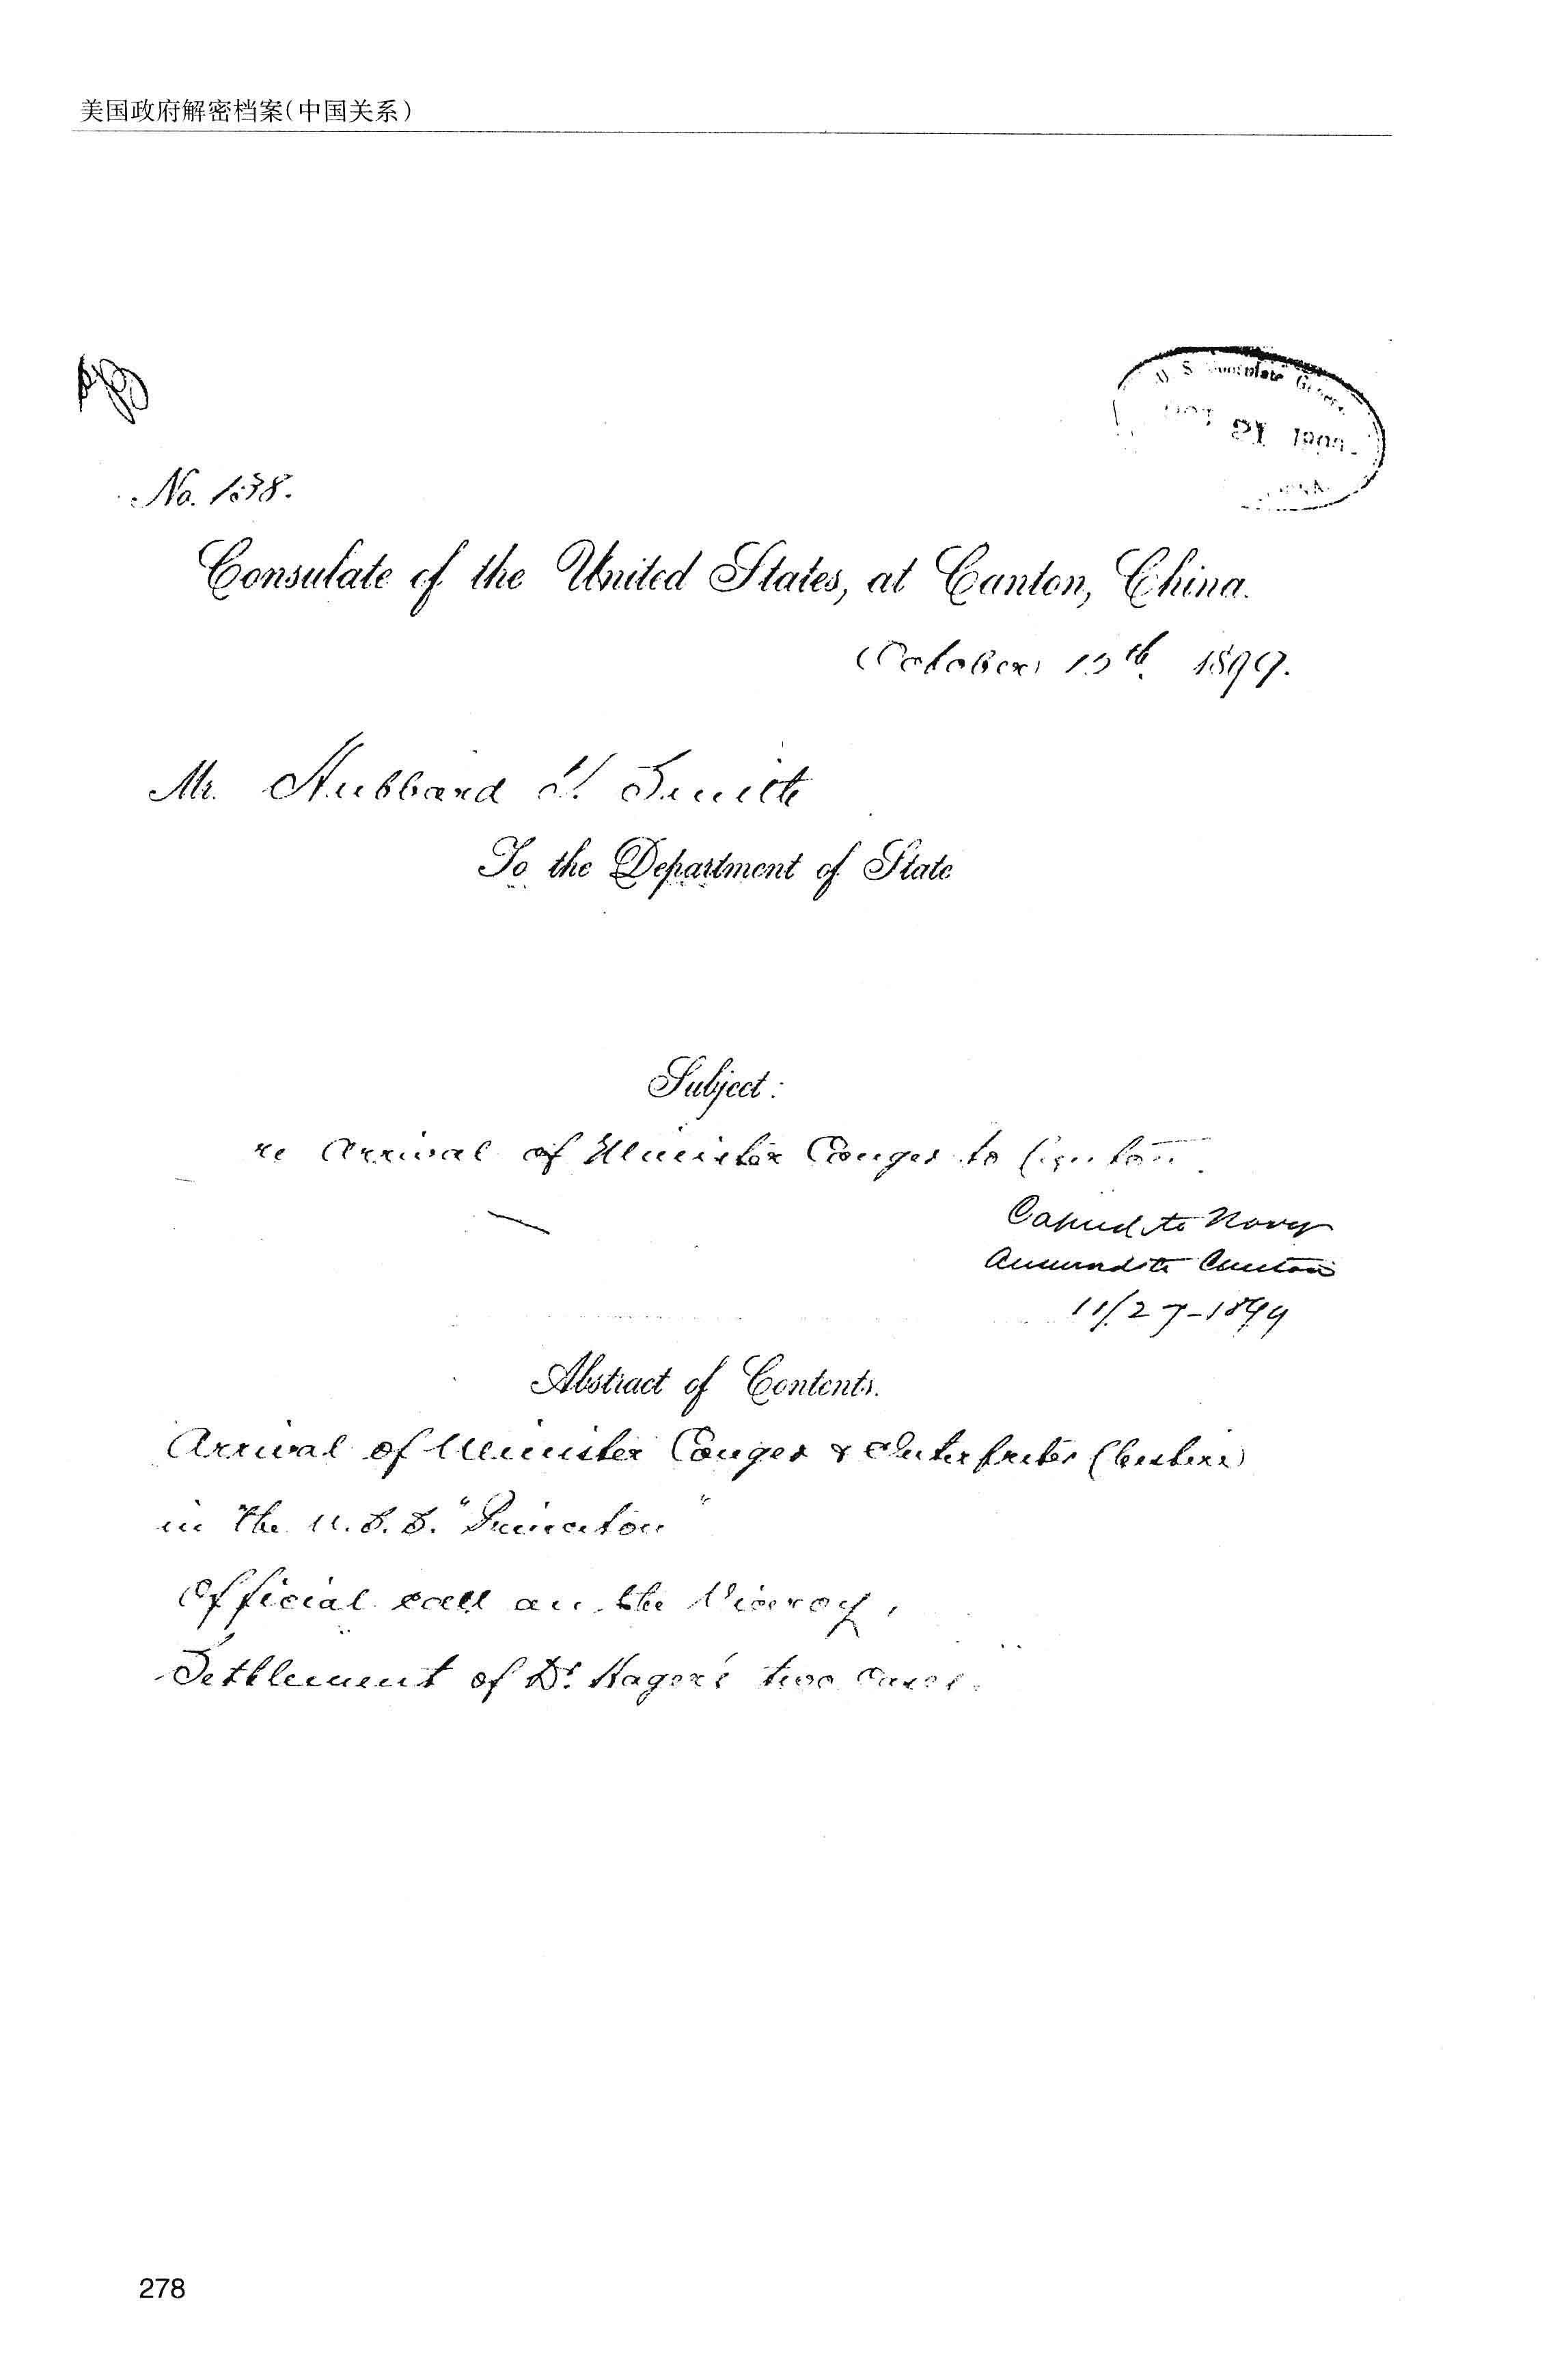 美国政府解密档案(中国关系)
U S Consulate General
No. 138.
Consulate of the United States, at Canton, China.
October 13th. 1899.
Mr. Hubbard T. Smith
To the Department of State
Subject:
re Arrival of Minister Conger to Canton.
Copied to Navy
Answered to Canton
11/27-1899
Abstract of Contents.
Arrival of Minister Conger & Interpreter Cheshire
in the U.S.S. "Princeton"
Official call on the Viceroy,
Settlement of Dr. Hager's two cases.
278